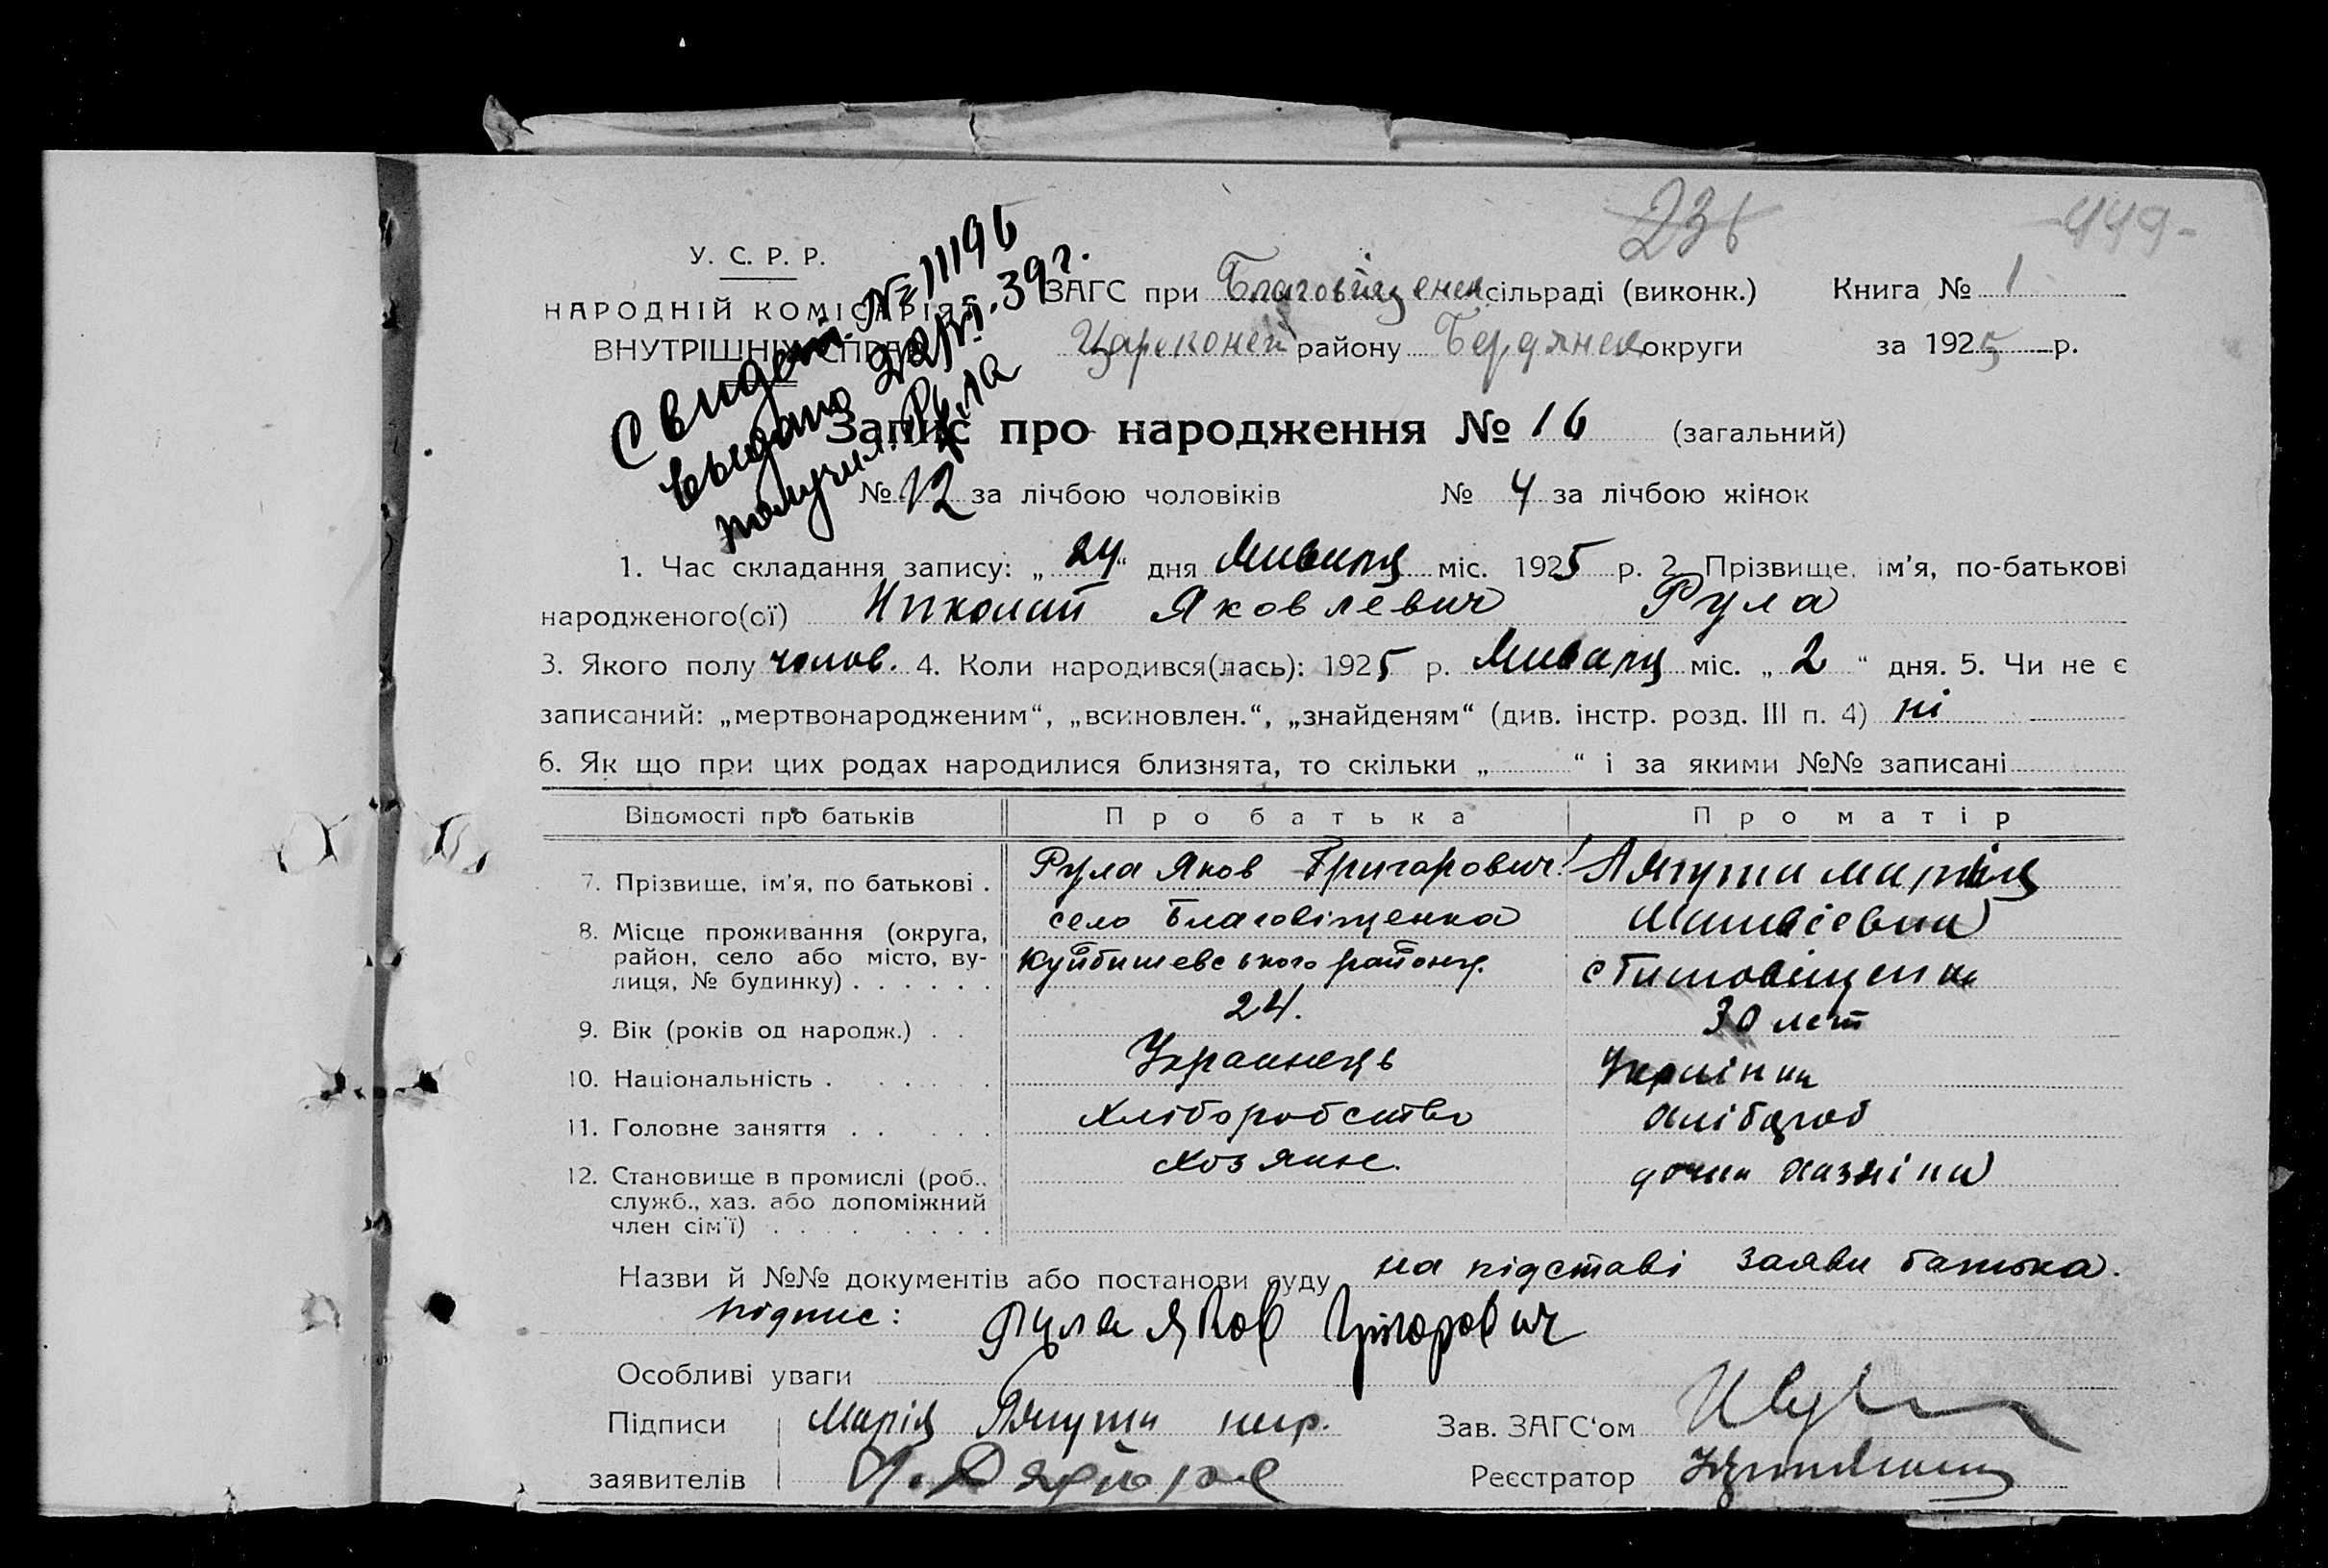 236 -449-
У. С. Р. Р.
НАРОДНІЙ КОМІСАРІЯТ
ВНУТРІШНІХ СПРАВ
Свидет. № 111196
выдано 39 г.
получил Рула
ЗАГС при Благовіщенск сільраді (виконк.) Книга № 1
Царекон району Бердянск округи за 1925 р.
Запис про народження № 16 (загальний)
№ 12 за лічбою чоловіків № 4 за лічбою жінок
1. Час складання запису: „24“ дня января міс. 1925 р. 2. Прізвище, ім’я, по-батькові
народженого(ої) Николай Яковлевич Рула
3. Якого полу чолов. 4. Коли народився(лась): 1925 р. января міс. „2“ дня. 5. Чи не є
записаний: „мертвонародженим“, „всиновлен.“, „знайденям“ (див. інстр. розд. III п. 4) ні
6. Як що при цих родах народилися близнята, то скільки „ “ і за якими №№ записані
Відомості про батьків Про батька Про матір
7. Прізвище, ім’я, по батькові . Рула Яков Григорович Марія
8. Місце проживання (округа, район, село або місто, вулиця, № будинку) . . . . . . село Благовіщенка
Куйбишевського району.
9. Вік (років од народж.) . . 24. 30 лет
10. Національність . . . . . . Українець Українка
11. Головне заняття . . . . . . Хліборобство хлібороб
12. Становище в промислі (роб., служб., хаз. або допоміжний член сім’ї) . . . . . . . . Хозяин. дочка
Назви й №№ документів або постанови суду на підставі заяви батька.
підпис: Рула Яков Григорович
Особливі уваги
Підписи Марія
заявителів
Зав. ЗАГС‘ом
Реєстратор